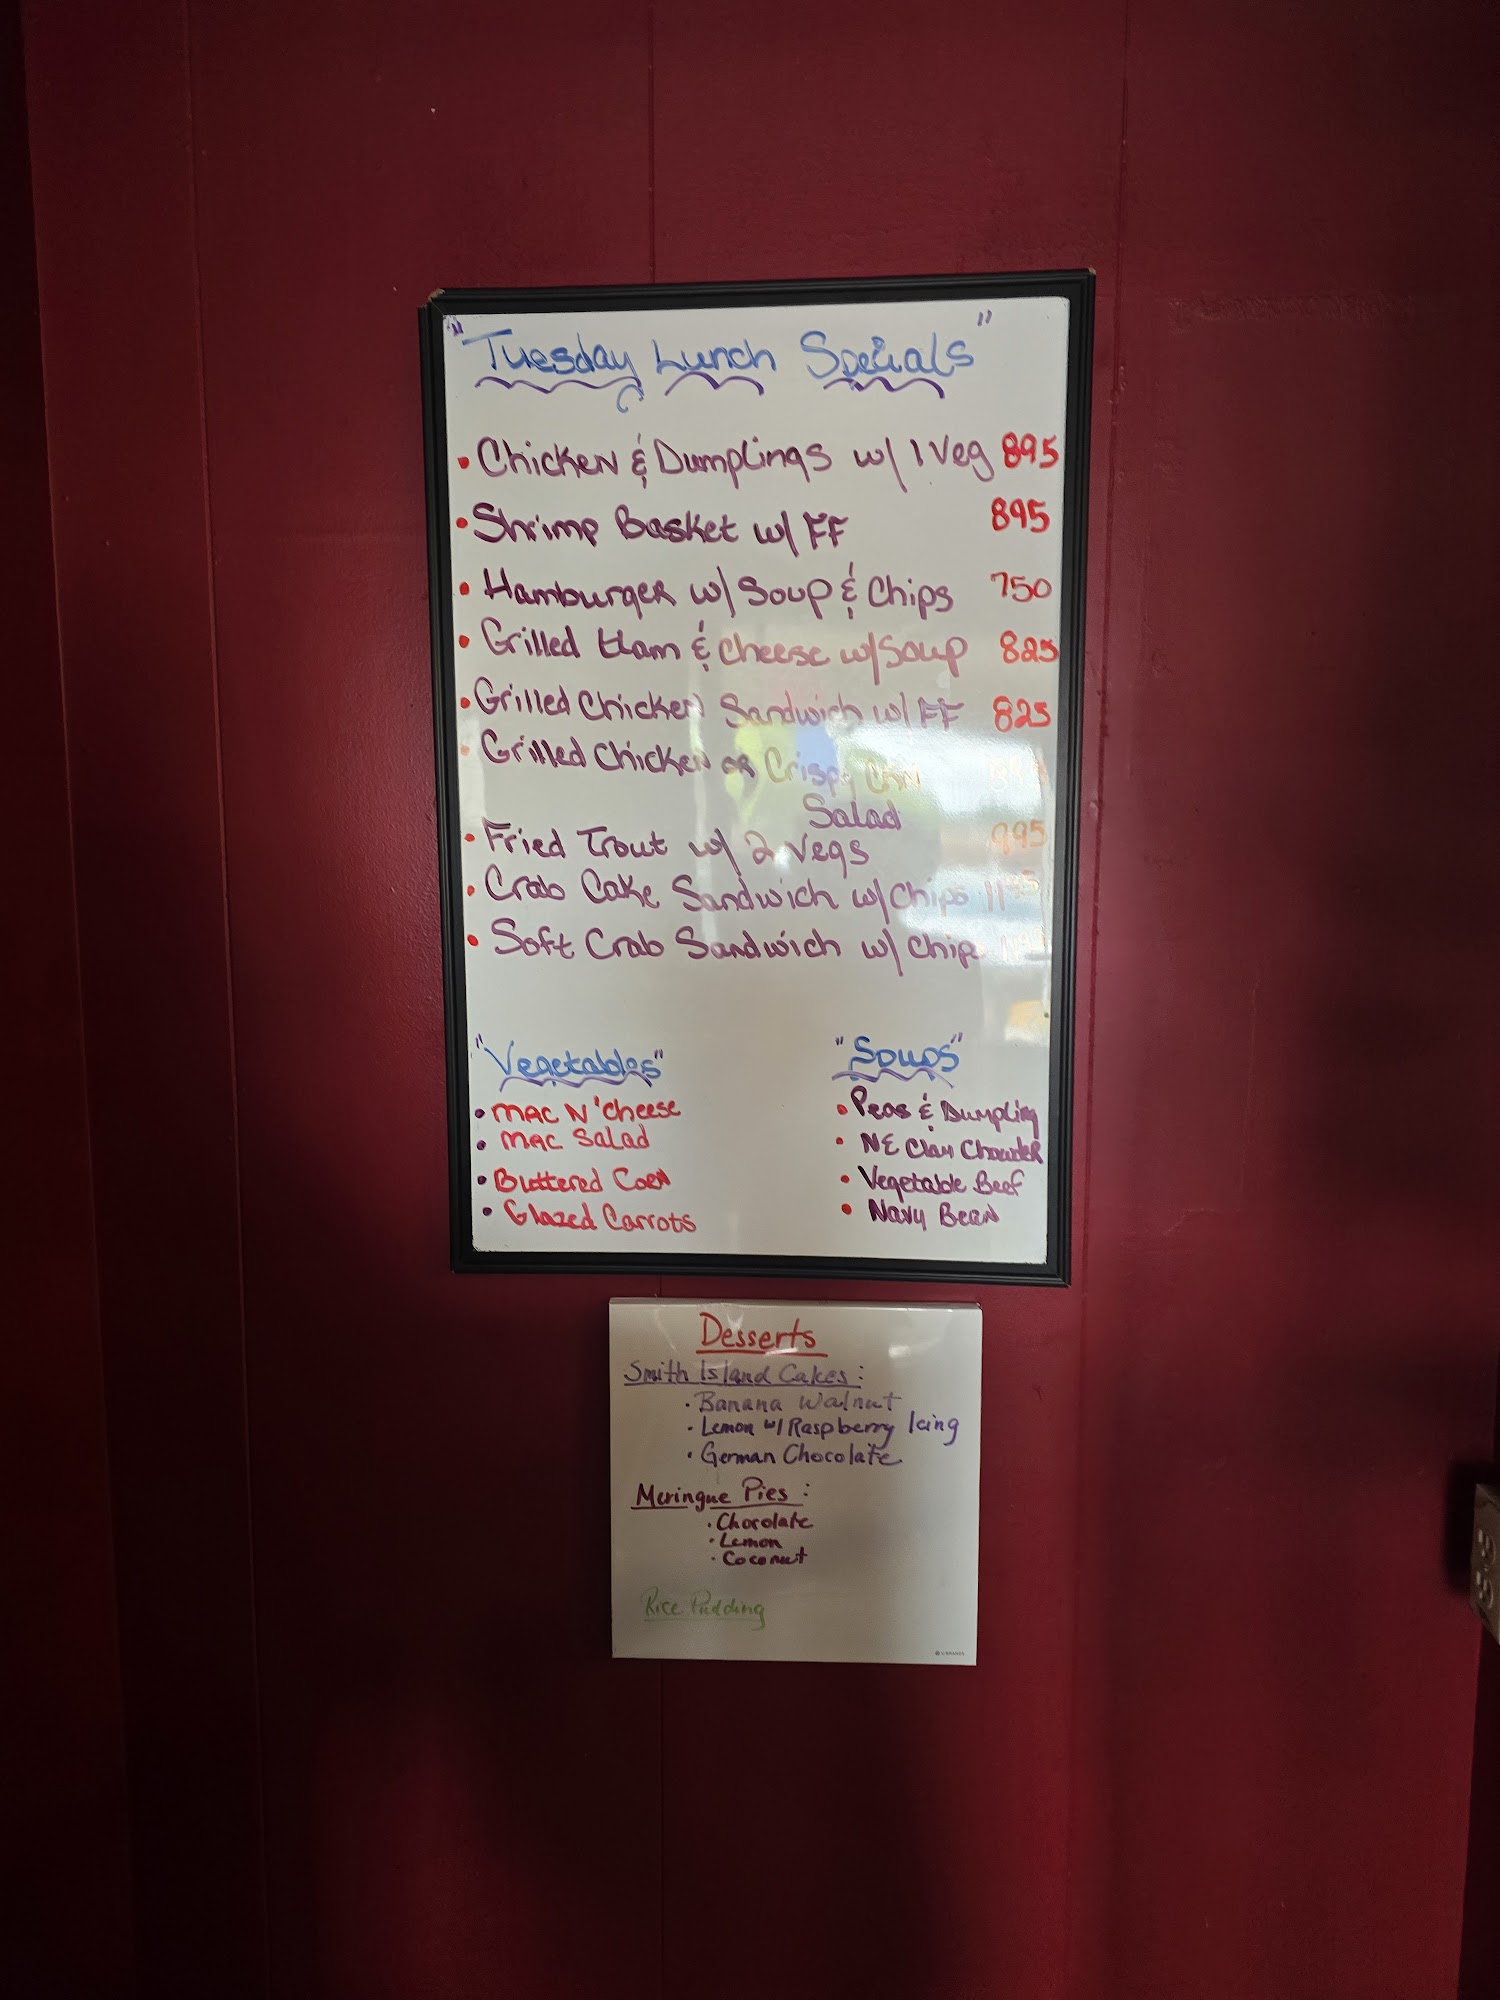 "Tuesday Lunch Specials"
• Chicken & Dumplings w/ 1 Veg 895
• Shrimp Basket w/ FF 895
• Hamburger w/ Soup & Chips 750
• Grilled Ham & Cheese w/ Soup 825
• Grilled Chicken Sandwich w/ FF 825
• Grilled Chicken or Crispy Chkn
Salad
• Fried Trout w/ 2 Vegs 995
• Crab Cake Sandwich w/ Chips
• Soft Crab Sandwich w/ Chips
"Vegetables"
• Mac N' Cheese
• Mac Salad
• Buttered Corn
• Glazed Carrots
"Soups"
• Peas & Dumpling
• NE Clam Chowder
• Vegetable Beef
• Navy Bean
Desserts
Smith Island Cakes:
• Banana Walnut
• Lemon w/ Raspberry Icing
• German Chocolate
Meringue Pies:
• Chocolate
• Lemon
• Coconut
Rice Pudding
U BRANDS